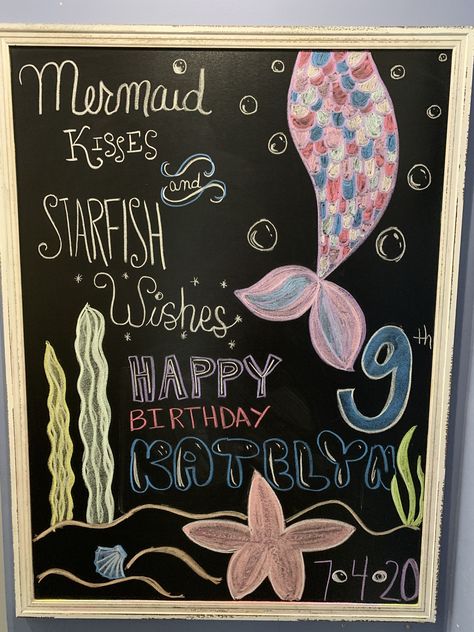 Mermaid
Kisses
and
STARFISH
Wishes
HAPPY
9th
BIRTHDAY
KATELYN
7•4•20